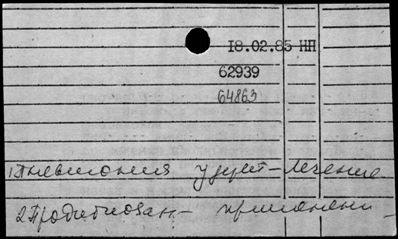 18.02.85 НН
62939
64863
1) Пневмония у детей – лечение
2) Продигиозан – применени